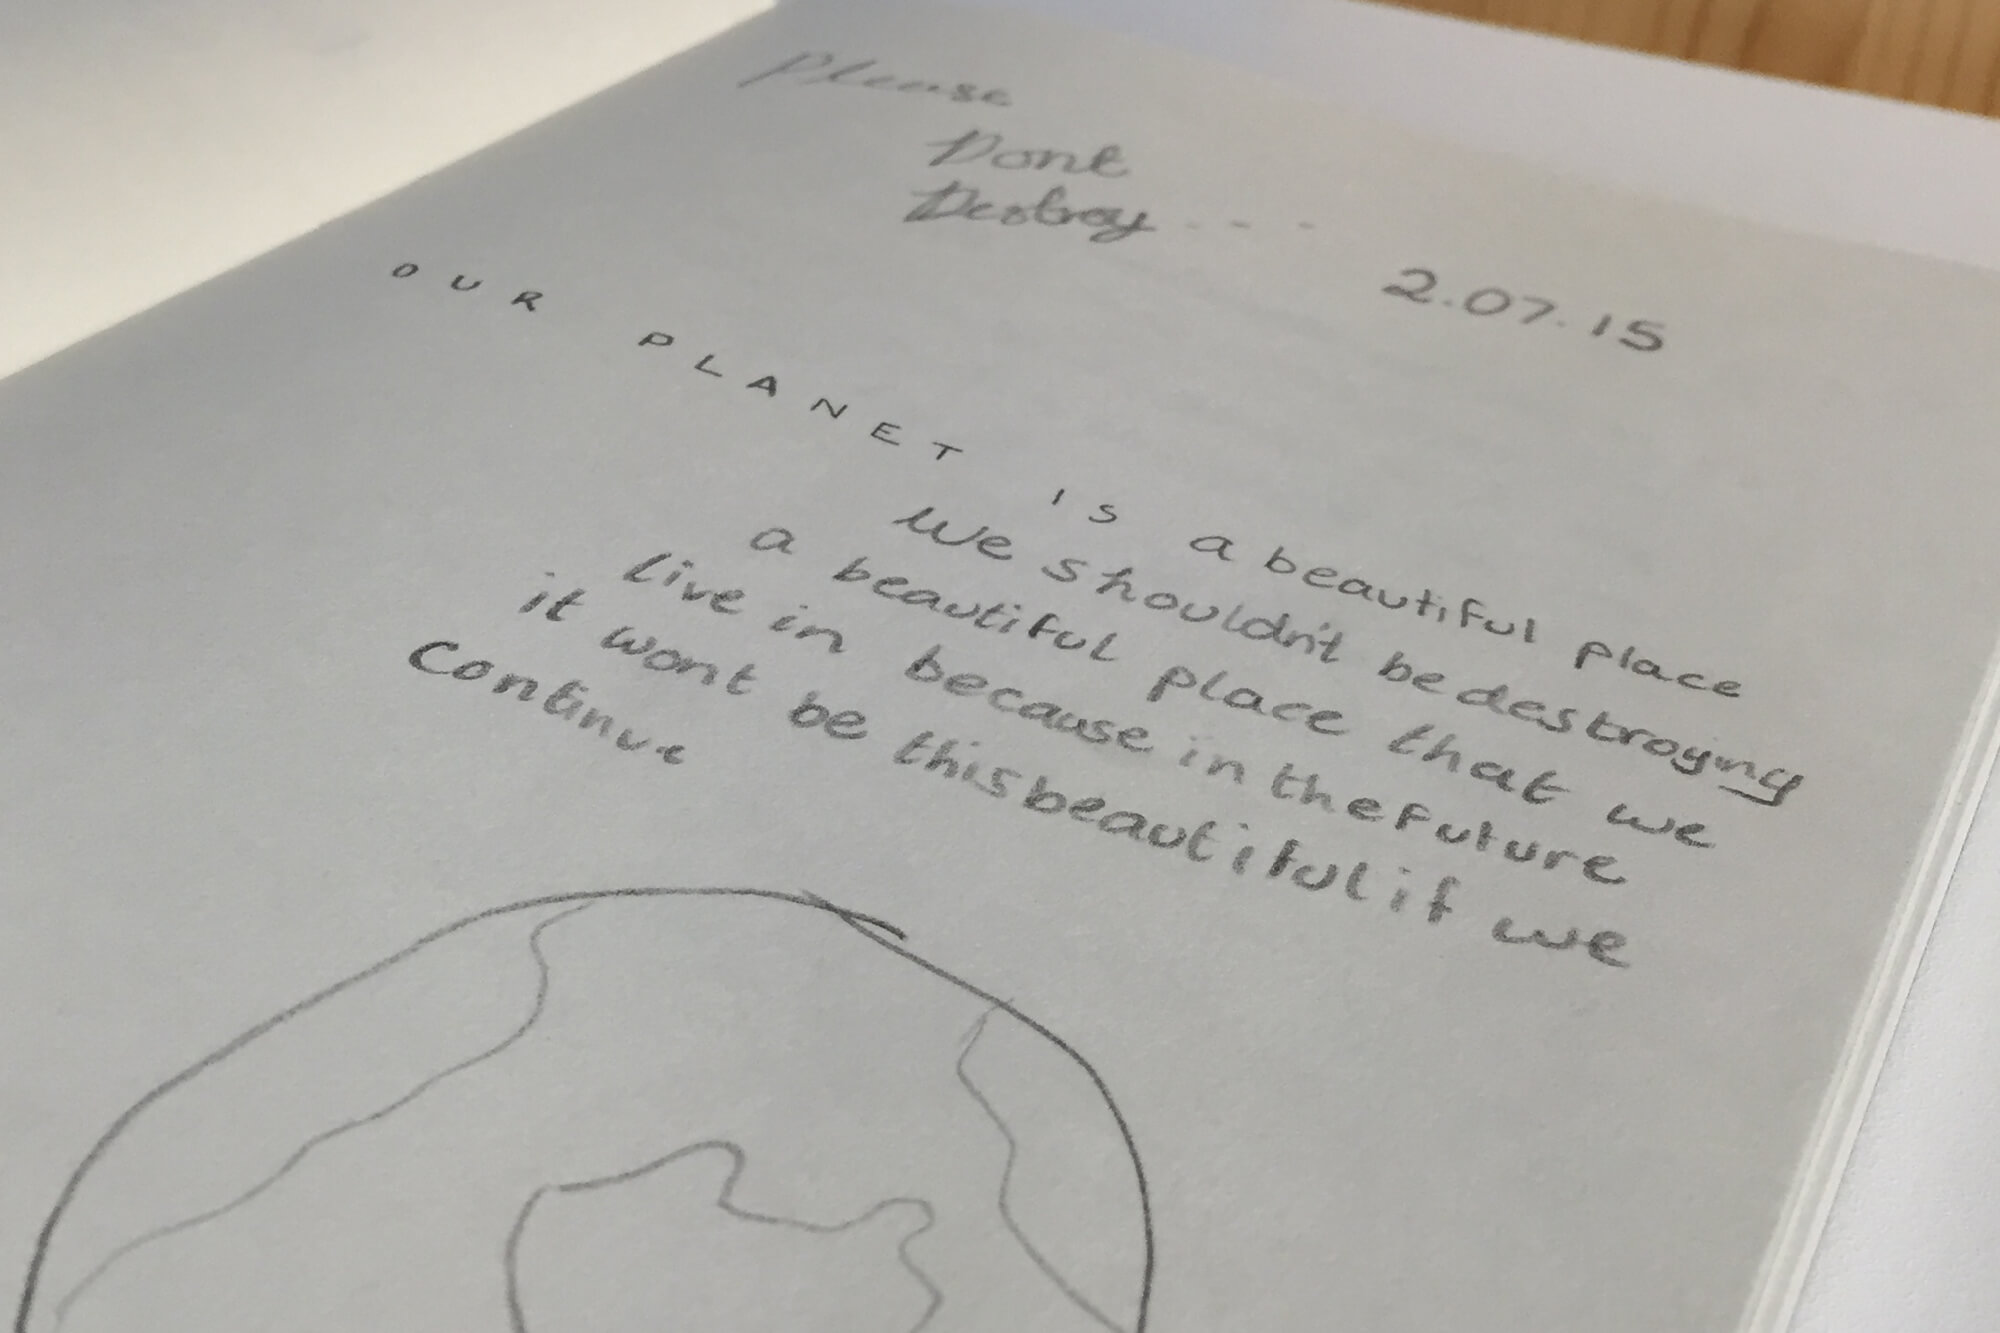 Please
Dont
Destroy - - -
2.07.15
OUR PLANET IS a beautiful place
We shouldn't be destroying
a beautiful place that we
live in because in the future
it wont be this beautiful if we
Continue